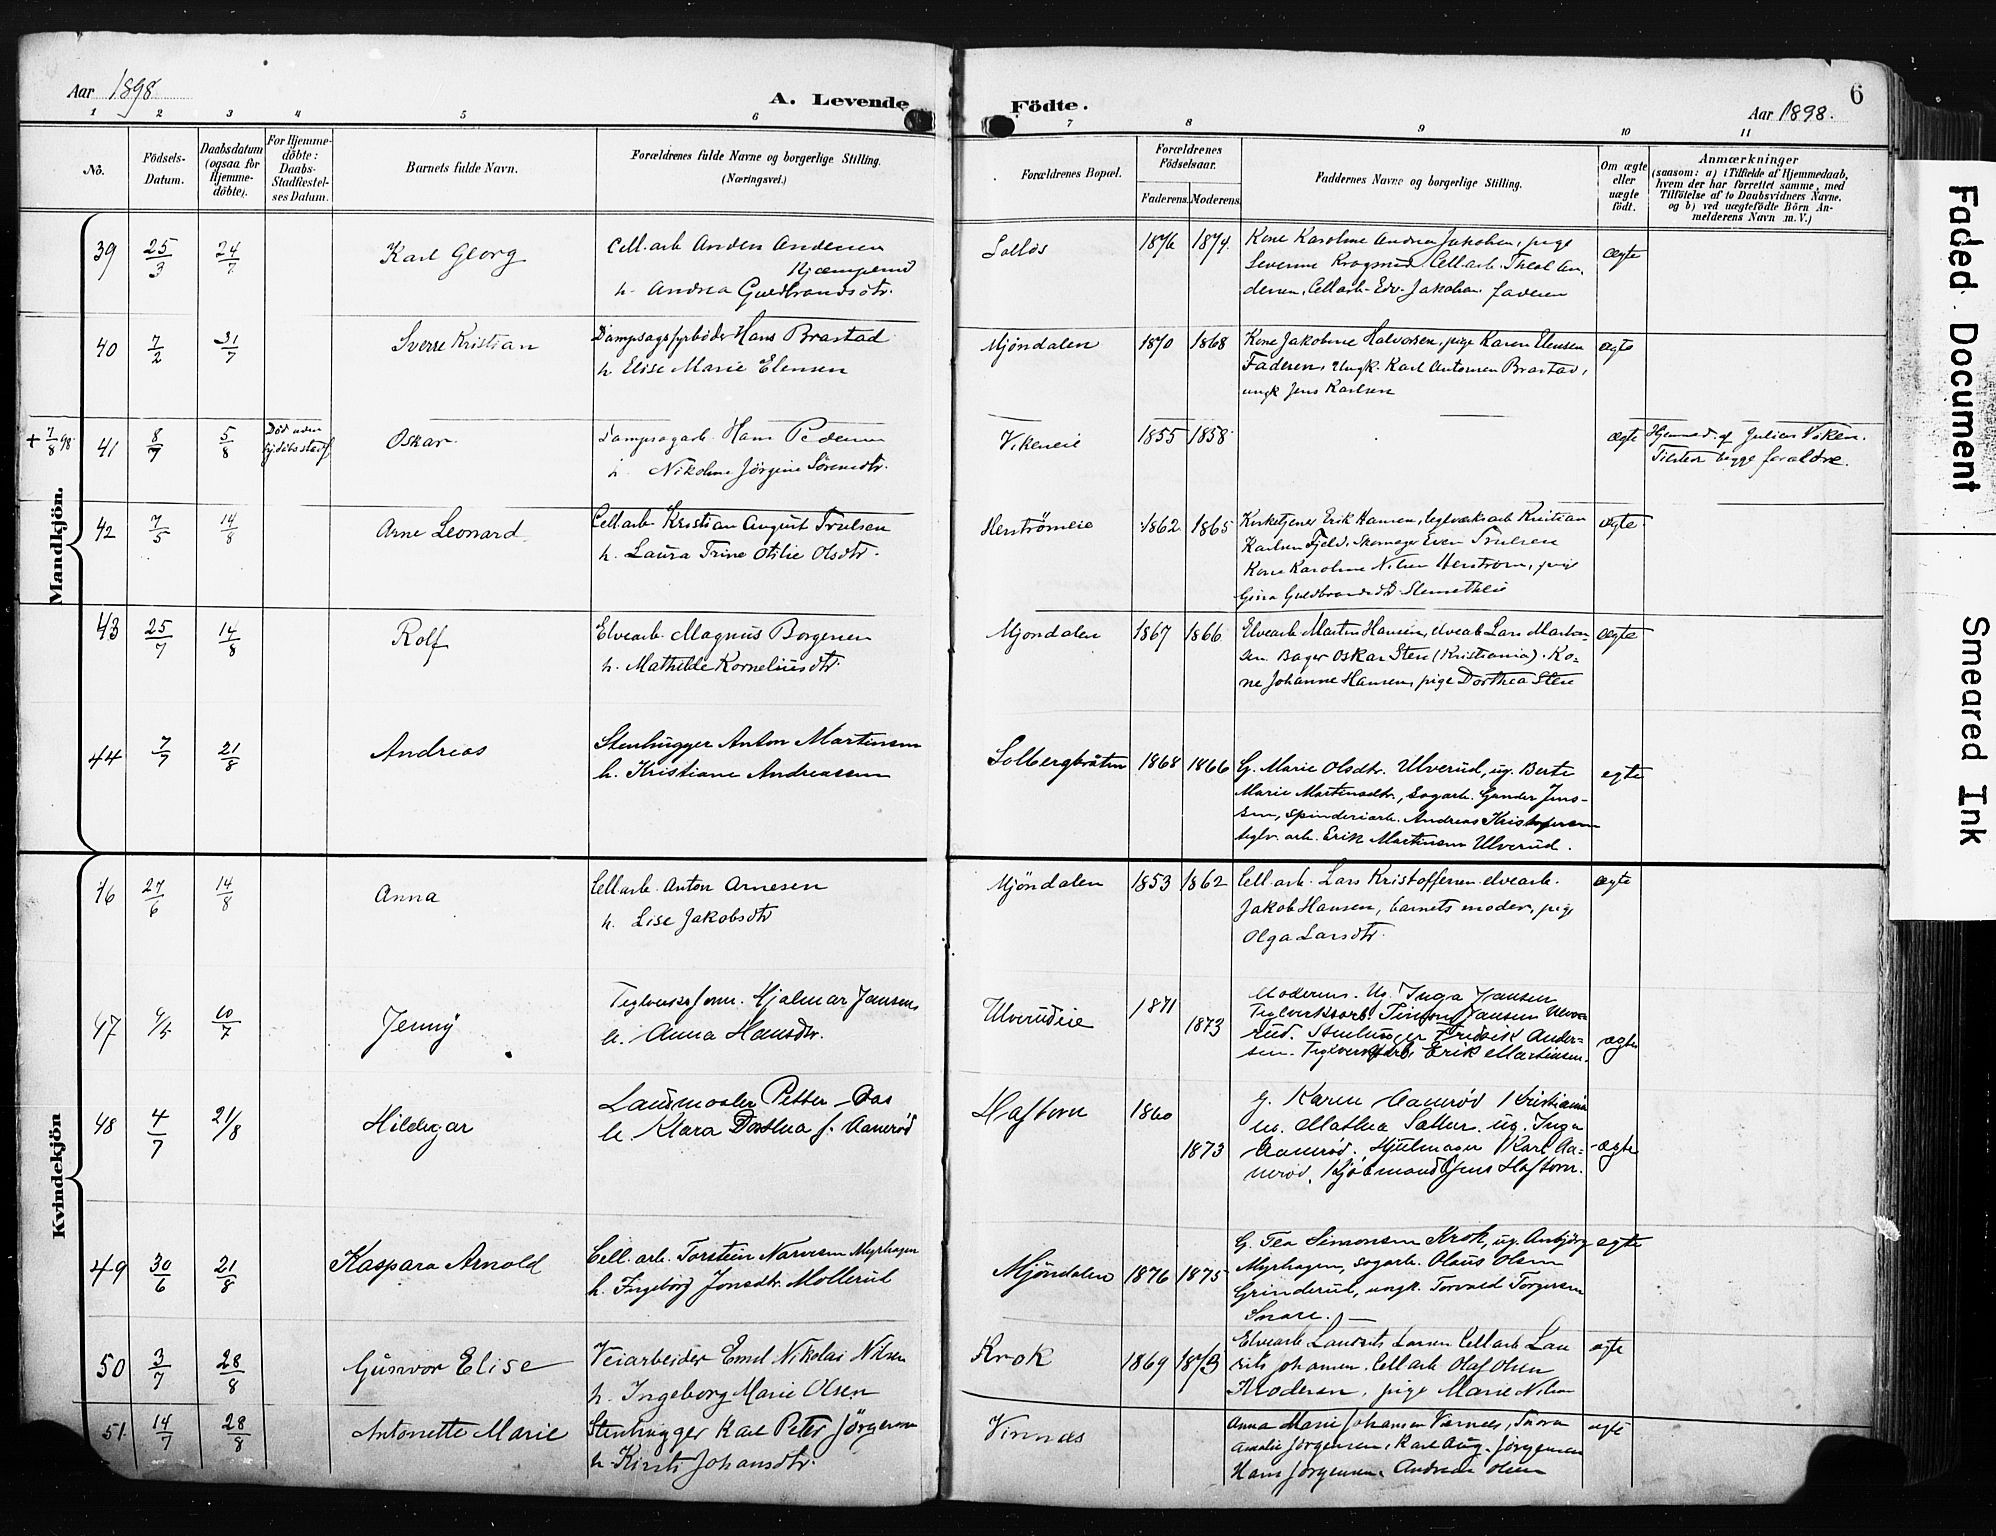 Aar 1898
A. Levende Födte.
6
Aar 1898.
1 2 3 4 5 6 7 8 9 10 11
No.
Födsels-
Datum.
Daabsdatum
(ogsaa for
Hjemme-
döbte).
For Hjemme-
döbte:
Daabs-
Stadfæstel-
ses Datum.
Barnets fulde Navn.
Forældrenes fulde Navne og borgerlige Stilling.
(Næringsvei.)
Forældrenes Bopæl.
Forældrenes
Födselsaar.
Faderens. Moderens.
Faddernes Navne og borgerlige Stilling.
Om ægte
eller
uægte
födt.
Anmærkninger
(saasom: a) i Tilfælde af Hjemmedaab,
hvem der har forrettet samme, med
Tilföielse af to Daabsvidners Navne.
og b) ved uægtefödte Börn An-
melderens Navn m. V.)
Mandkjön.
39 25/3 24/7 Karl Georg
Cell.arb. Anders Andersen
h. Andrea Guldbrandsdtr.
1876 1874
Kone Karoline Andrea Jakobsen, pige
Cell.arb. Edv. Jakobsen. faderen
ægte
40 7/2 31/7 Sverre Kristian
Dampsagsfyrböder Hans Brastad
h. Elise Marie Elensen
Mjöndalen 1870 1868
Kone Jakobine Halvorsen. pige Karen Elensen
Faderen, Ungk. Karl Antonsen Brastad,
ungk Jens Karlsen
ægte
+ 7/8 98. 41 8/7 5/8 Oskar
Dampsagarb. Hans Pedersen
h. Nikoline Jörgine Sörensdtr.
Vikeneie 1855 1858
ægte
Hjemmed. af Julius Viken.
Tilstede begge forældre.
42 7/5 14/8 Arne Leonard
Cell.arb Kristian August Trulsen
h. Laura Trine Otilie Olsdtr.
Herströmeie 1862 1865
Kirketjener Erik Hansen, teglværksarb Kristian
Karlsen Fjeld, Skomager Even Trulsen
Kone Karoline Nilsen Herstrøm, pige
Gina Guldbrandsdtr
ægte
43 25/7 14/8 Rolf
Elvearb. Magnus Borgersen
h. Mathilde Korneliusdtr.
Mjöndalen 1867 1866
Elvearb Martin Hansen, elvearb Lars Marten-
sen. Bager Oskar Steen (Kristiania). Ko-
ne Johanne Hansen, pige Dorthea Steen
ægte
44 7/7 21/8 Andreas
Stenhugger Anton Martinsen
h. Kristiane Andreassen
Solbergbråten 1868 1866
G. Marie Olsdtr. Ulverud, ug. Berte
Marie Martinsdtr., Sagarb. Gunder Jens-
sen, Spinderiarb. Andreas Kristofersen
teglv. arb. Erik Martinsen Ulverud.
egte
Kvindekjön
46 27/6 14/8 Anna
Cell.arb. Anton Arnesen
h. Lise Jakobsdtr
Mjöndalen 1853 1862
Cell.arb. Lars Kristoffersen. elvearb.
Jakob Hansen, barnets moder, pige
Olga Larsdtr.
ægte
47 10/7 Jenny
Teglverksform. Hjalmar Jansen
h. Anna Hansdtr.
Ulverudeie 1871 1873
Moderens. Ug. Inga Jansen
Teglverksarb. Jansen Ulve-
rud. Stenhugger Fredrik Ander-
sen. Teglverksarb Erik Martinsen.
ægte
48 4/7 21/8 Hildegar
Landmaaler Petter Aas
h. Klara Dorthea f. Aanerød
Haftorn 1860 1873
G. Karen Aanerød Kristiania
ug. Mathea Sather. ug. Inga
Aanerød. Hjulmager Karl Aa-
nerød. Kjøbmand Jens Haftorn.
ægte
49 30/6 21/8 Kaspara Arnold
Cell. arb. Torstein Narvesen Myrhagen
h. Ingeborg Jonsdtr. Mollerud
Mjöndalen 1876 1875
G. Tea Simonsen Krok, ug. Anbjörg
Myrhagen, sagarb. Olaus Olsen
Grinderud, ungk. Torvald Torgersen
Snare.
egte
50 3/7 28/8 Gunvor Elise
Veiarbeider Emil Nikolai Nilsen
h. Ingeborg Marie Olsen
Krok 1869 1873
Elvearb Laurits Larsen Cellarb Lau
rits Johansen. Cellarb Olaf Olsen
Moderen, pige Marie Nilsen
egte
51. 14/7 28/8 Antonette Marie
Stenhugger Karl Peter Jörgensen
h. Kirsti Johansdtr.
Vinnæs
Anna Marie Johansen Vinnæs,
Amalie Jörgensen, Karl Aug. Jörgensen
Hans Jörgensen, Andreas Olsen
egte
Faded Document
Smeared Ink